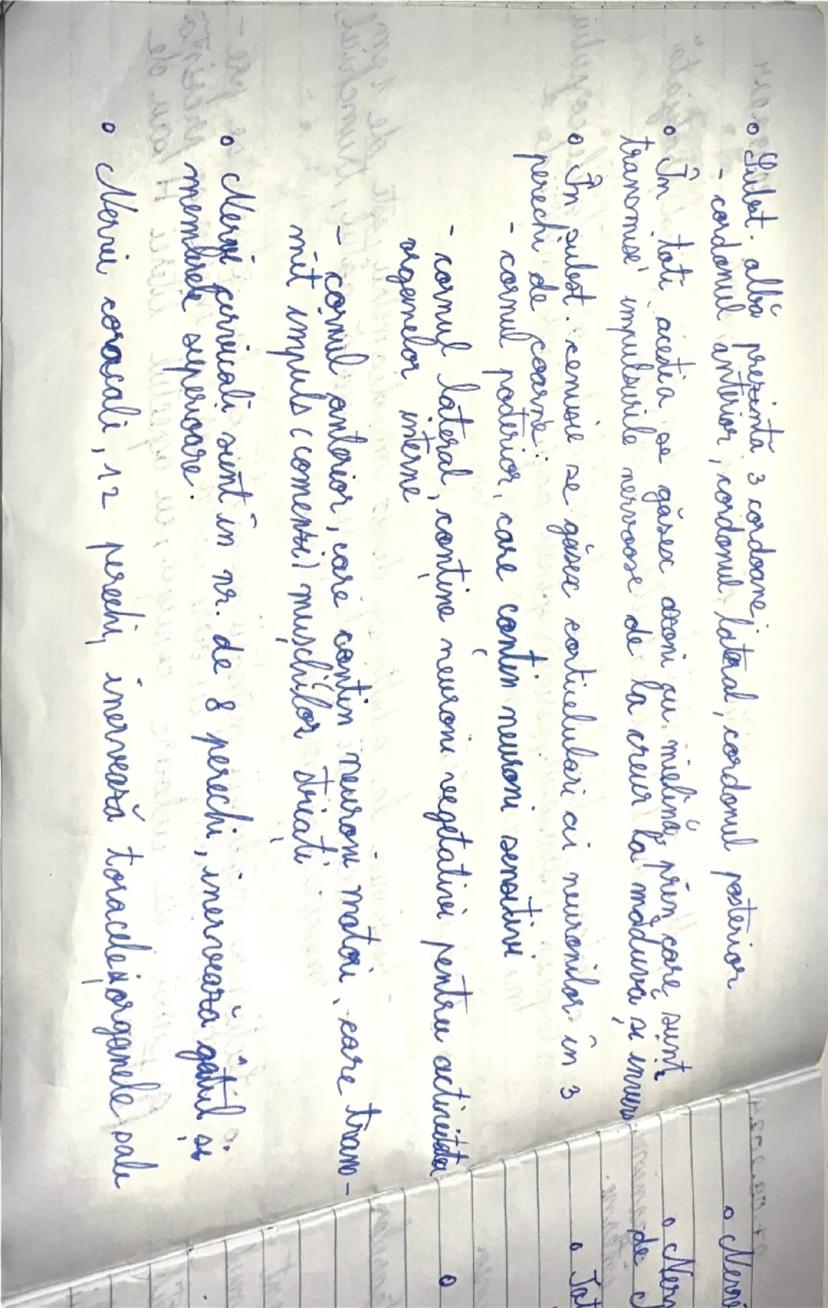 • Subst. albă prezintă 3 cordoane:
- cordonul anterior, cordonul lateral, cordonul posterior
• În toti aceștia se găsesc axoni cu mielină, prin care sunt
transmise impulsurile nervoase de la creier la măduva și invers.
• În subst. cenusie se găsesc corticelulari ai neuronilor în 3
perechi de coarne:
- cornul posterior, care conțin neuroni senzitivi
- cornul lateral, conține neuroni vegetativi pentru activitatea
organelor interne
- cornul anterior, care conțin neuroni motori, care trans-
mit impuls (comenzi) mușchilor striați
• Nervii cervicali sunt în nr. de 8 perechi, inervează gâtul și
membrele superioare.
• Nervii coracali, 12 perechi, inervează toracele organele sale
• Nerv
de